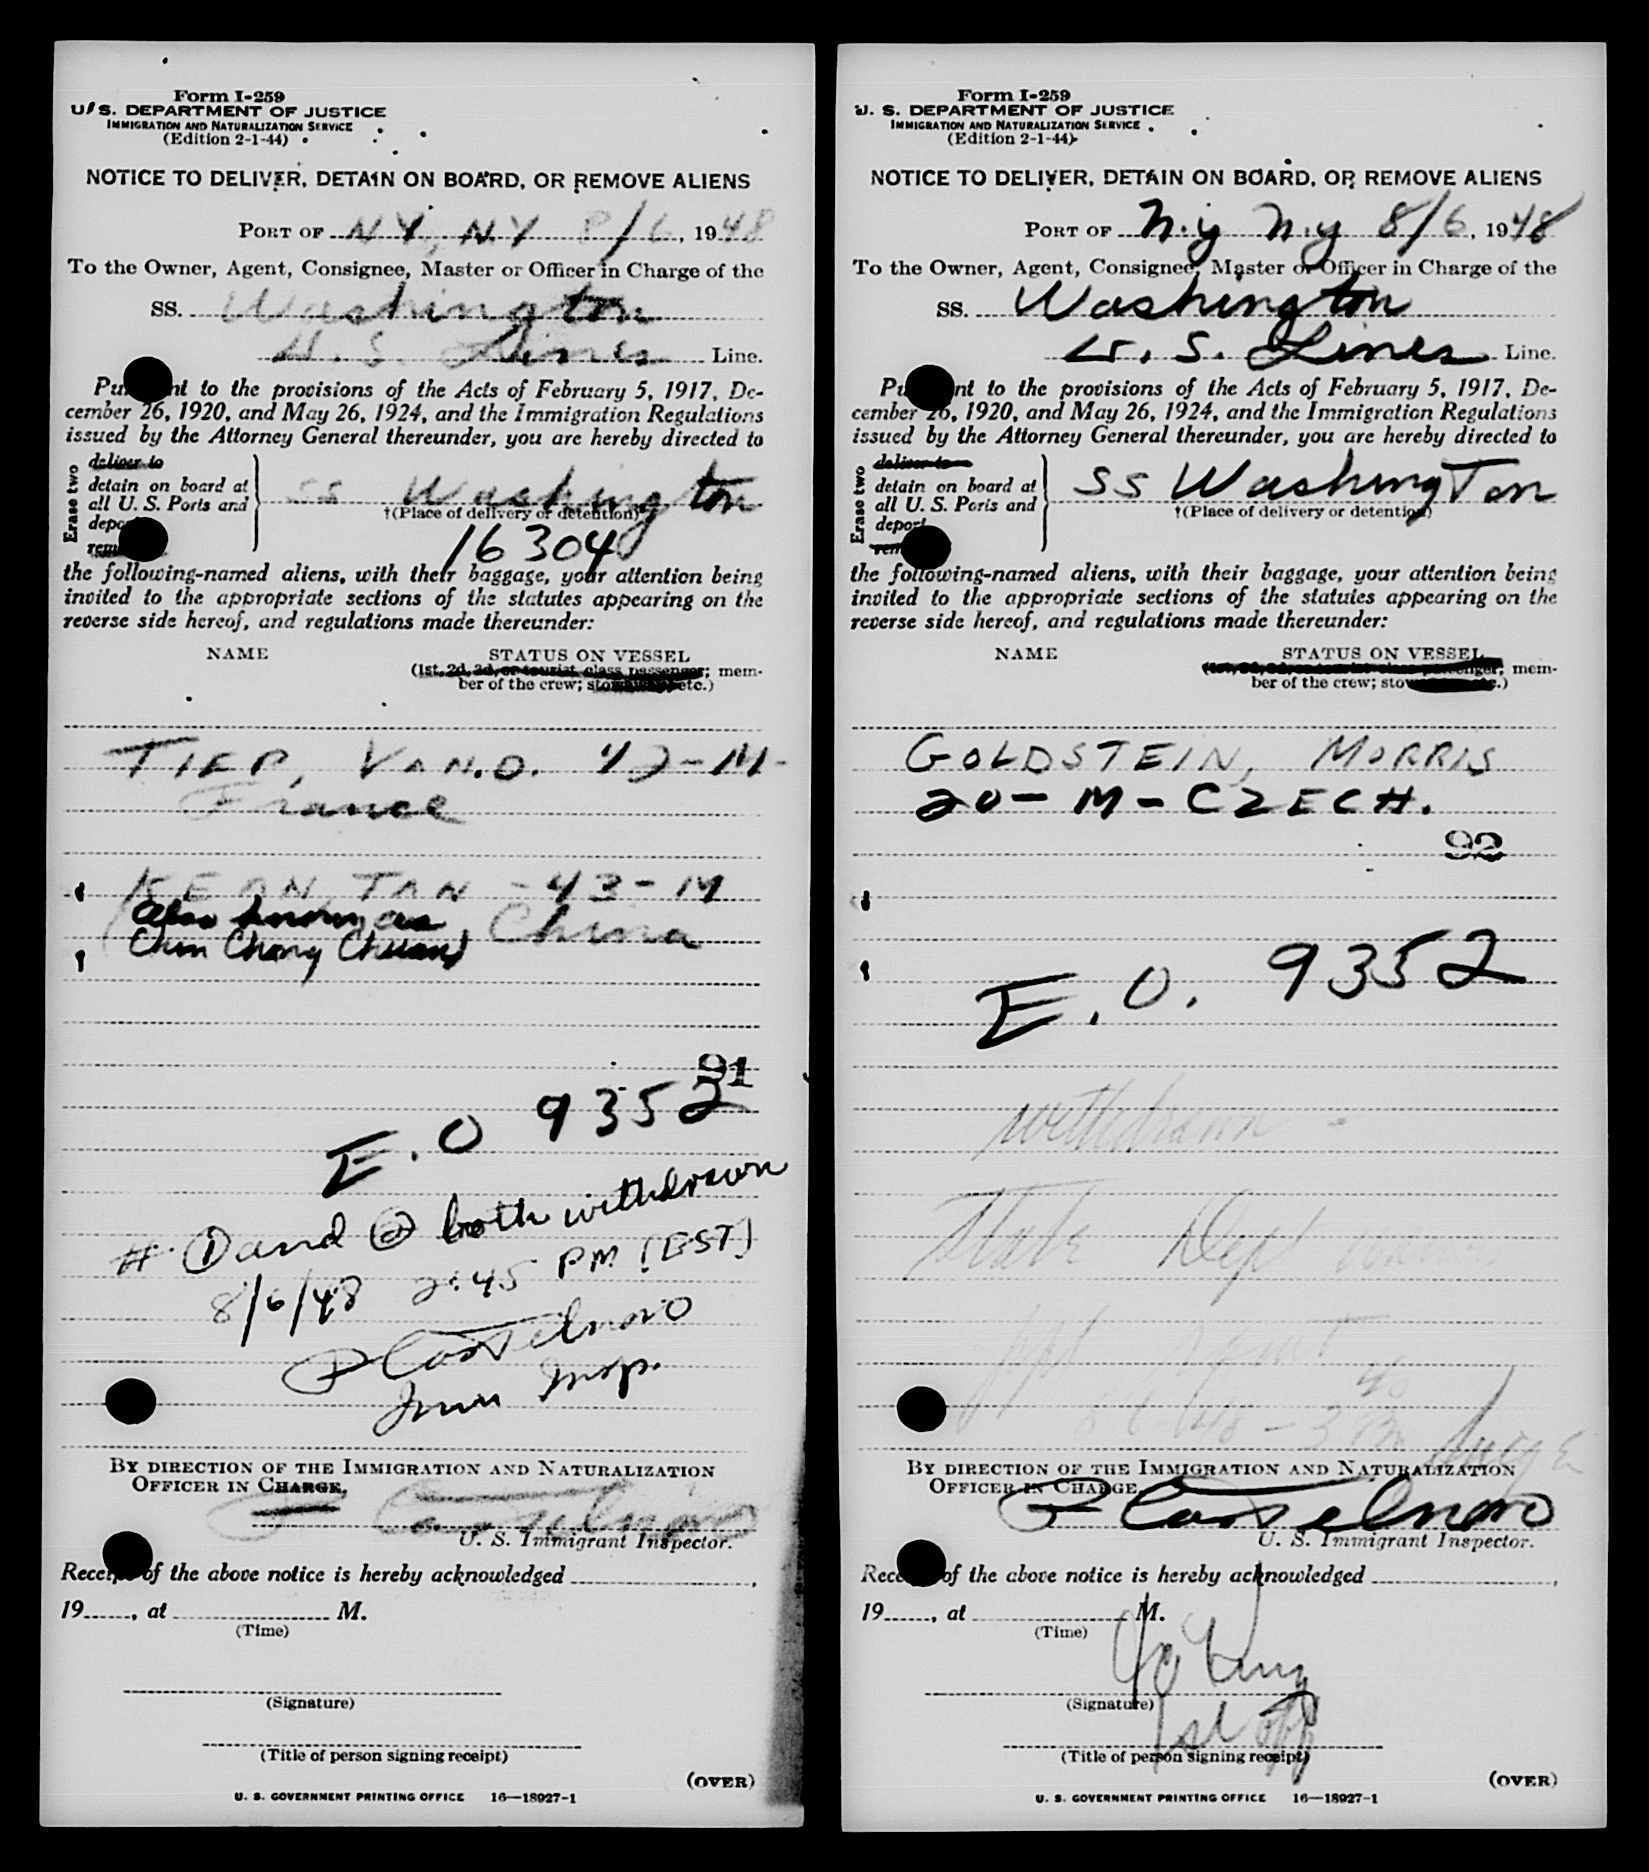 Form I-259
U. S. DEPARTMENT OF JUSTICE
IMMIGRATION AND NATURALIZATION SERVICE
(Edition 2-1-44)
NOTICE TO DELIVER, DETAIN ON BOARD, OR REMOVE ALIENS
PORT OF N Y, N.Y 8/6, 1948
To the Owner, Agent, Consignee, Master or Officer in Charge of the
SS. Washington
U. S. Lines Line.
Pu nt to the provisions of the Acts of February 5, 1917, De-
cember 26, 1920, and May 26, 1924, and the Immigration Regulations
issued by the Attorney General thereunder, you are hereby directed to
Erase two
deliver to
detain on board at
all U. S. Ports and
depo
rem
SS Washington
†(Place of delivery or detention)
16304
the following-named aliens, with their baggage, your attention being
invited to the appropriate sections of the statutes appearing on the
reverse side hereof, and regulations made thereunder:
NAME STATUS ON VESSEL
(1st, 2d, 3d, or tourist class passenger; mem-
ber of the crew; stowaway, etc.)
TIEP, VAN.O. 42-M-
France
KEAN, TAN - 43 - M
(Also known as China
Chin Chong Chuan)
91
E. O 9352
# ① and ② both withdrawn
8/6/48 2:45 PM (EST)
P Castelnovo
Imm Insp.
BY DIRECTION OF THE IMMIGRATION AND NATURALIZATION
OFFICER IN CHARGE.
P Castelnovo
U. S. Immigrant Inspector.
Receipt of the above notice is hereby acknowledged ,
19 , at M.
(Time)
(Signature)
(Title of person signing receipt)
(OVER)
U. S. GOVERNMENT PRINTING OFFICE 16—18927-1
Form I-259
U. S. DEPARTMENT OF JUSTICE
IMMIGRATION AND NATURALIZATION SERVICE
(Edition 2-1-44)
NOTICE TO DELIVER, DETAIN ON BOARD, OR REMOVE ALIENS
PORT OF N.Y N.Y 8/6, 1948
To the Owner, Agent, Consignee, Master or Officer in Charge of the
SS. Washington
U. S. Lines Line.
Pu nt to the provisions of the Acts of February 5, 1917, De-
cember 26, 1920, and May 26, 1924, and the Immigration Regulations
issued by the Attorney General thereunder, you are hereby directed to
Erase two
deliver to
detain on board at
all U. S. Ports and
deport
rem
SS Washington
†(Place of delivery or detention)
the following-named aliens, with their baggage, your attention being
invited to the appropriate sections of the statutes appearing on the
reverse side hereof, and regulations made thereunder:
NAME STATUS ON VESSEL
(1st, 2d, 3d, or tourist class passenger; mem-
ber of the crew; stow etc.)
GOLDSTEIN, MORRIS
20 - M - CZECH.
92
E. O. 9352
withdrawn -
State Dept
BY DIRECTION OF THE IMMIGRATION AND NATURALIZATION
OFFICER IN CHARGE.
P Castelnovo
U. S. Immigrant Inspector.
Rece of the above notice is hereby acknowledged ,
19 , at M.
(Time)
(Signature)
1st off
(Title of person signing receipt)
(OVER)
U. S. GOVERNMENT PRINTING OFFICE 16—18927-1